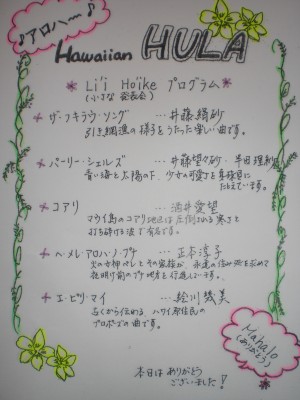 ♪アロハ〜♪
Hawaiian HULA
* Li'i Ho'ike プログラム *
(小さな 発表会)
* ザ・フキラウ・ソング …井藤 砂
引き網漁の様子をうたった楽しい曲です。
* パーリー・シェルズ …井藤望々砂・半田理紗
青い海と太陽の下、少女の可愛さを真珠貝に
たとえています。
* コアリ …酒井愛望
マウイ島のコアリ地区は圧倒される寒さと
打ち砕ける波で有名です。
* ヘ・メレ・アロハ・ノ・プナ …正本淳子
火の女神ペレとその家族が、永遠の住み家を求めて
夜明け前のプナ地方を行進しています。
* エ・ピリ・マイ …絵川 美
古くから伝わる、ハワイ原住民の
プロポーズの曲です。
Mahalo
(ありがとう)
本日は ありがとう
ございました!